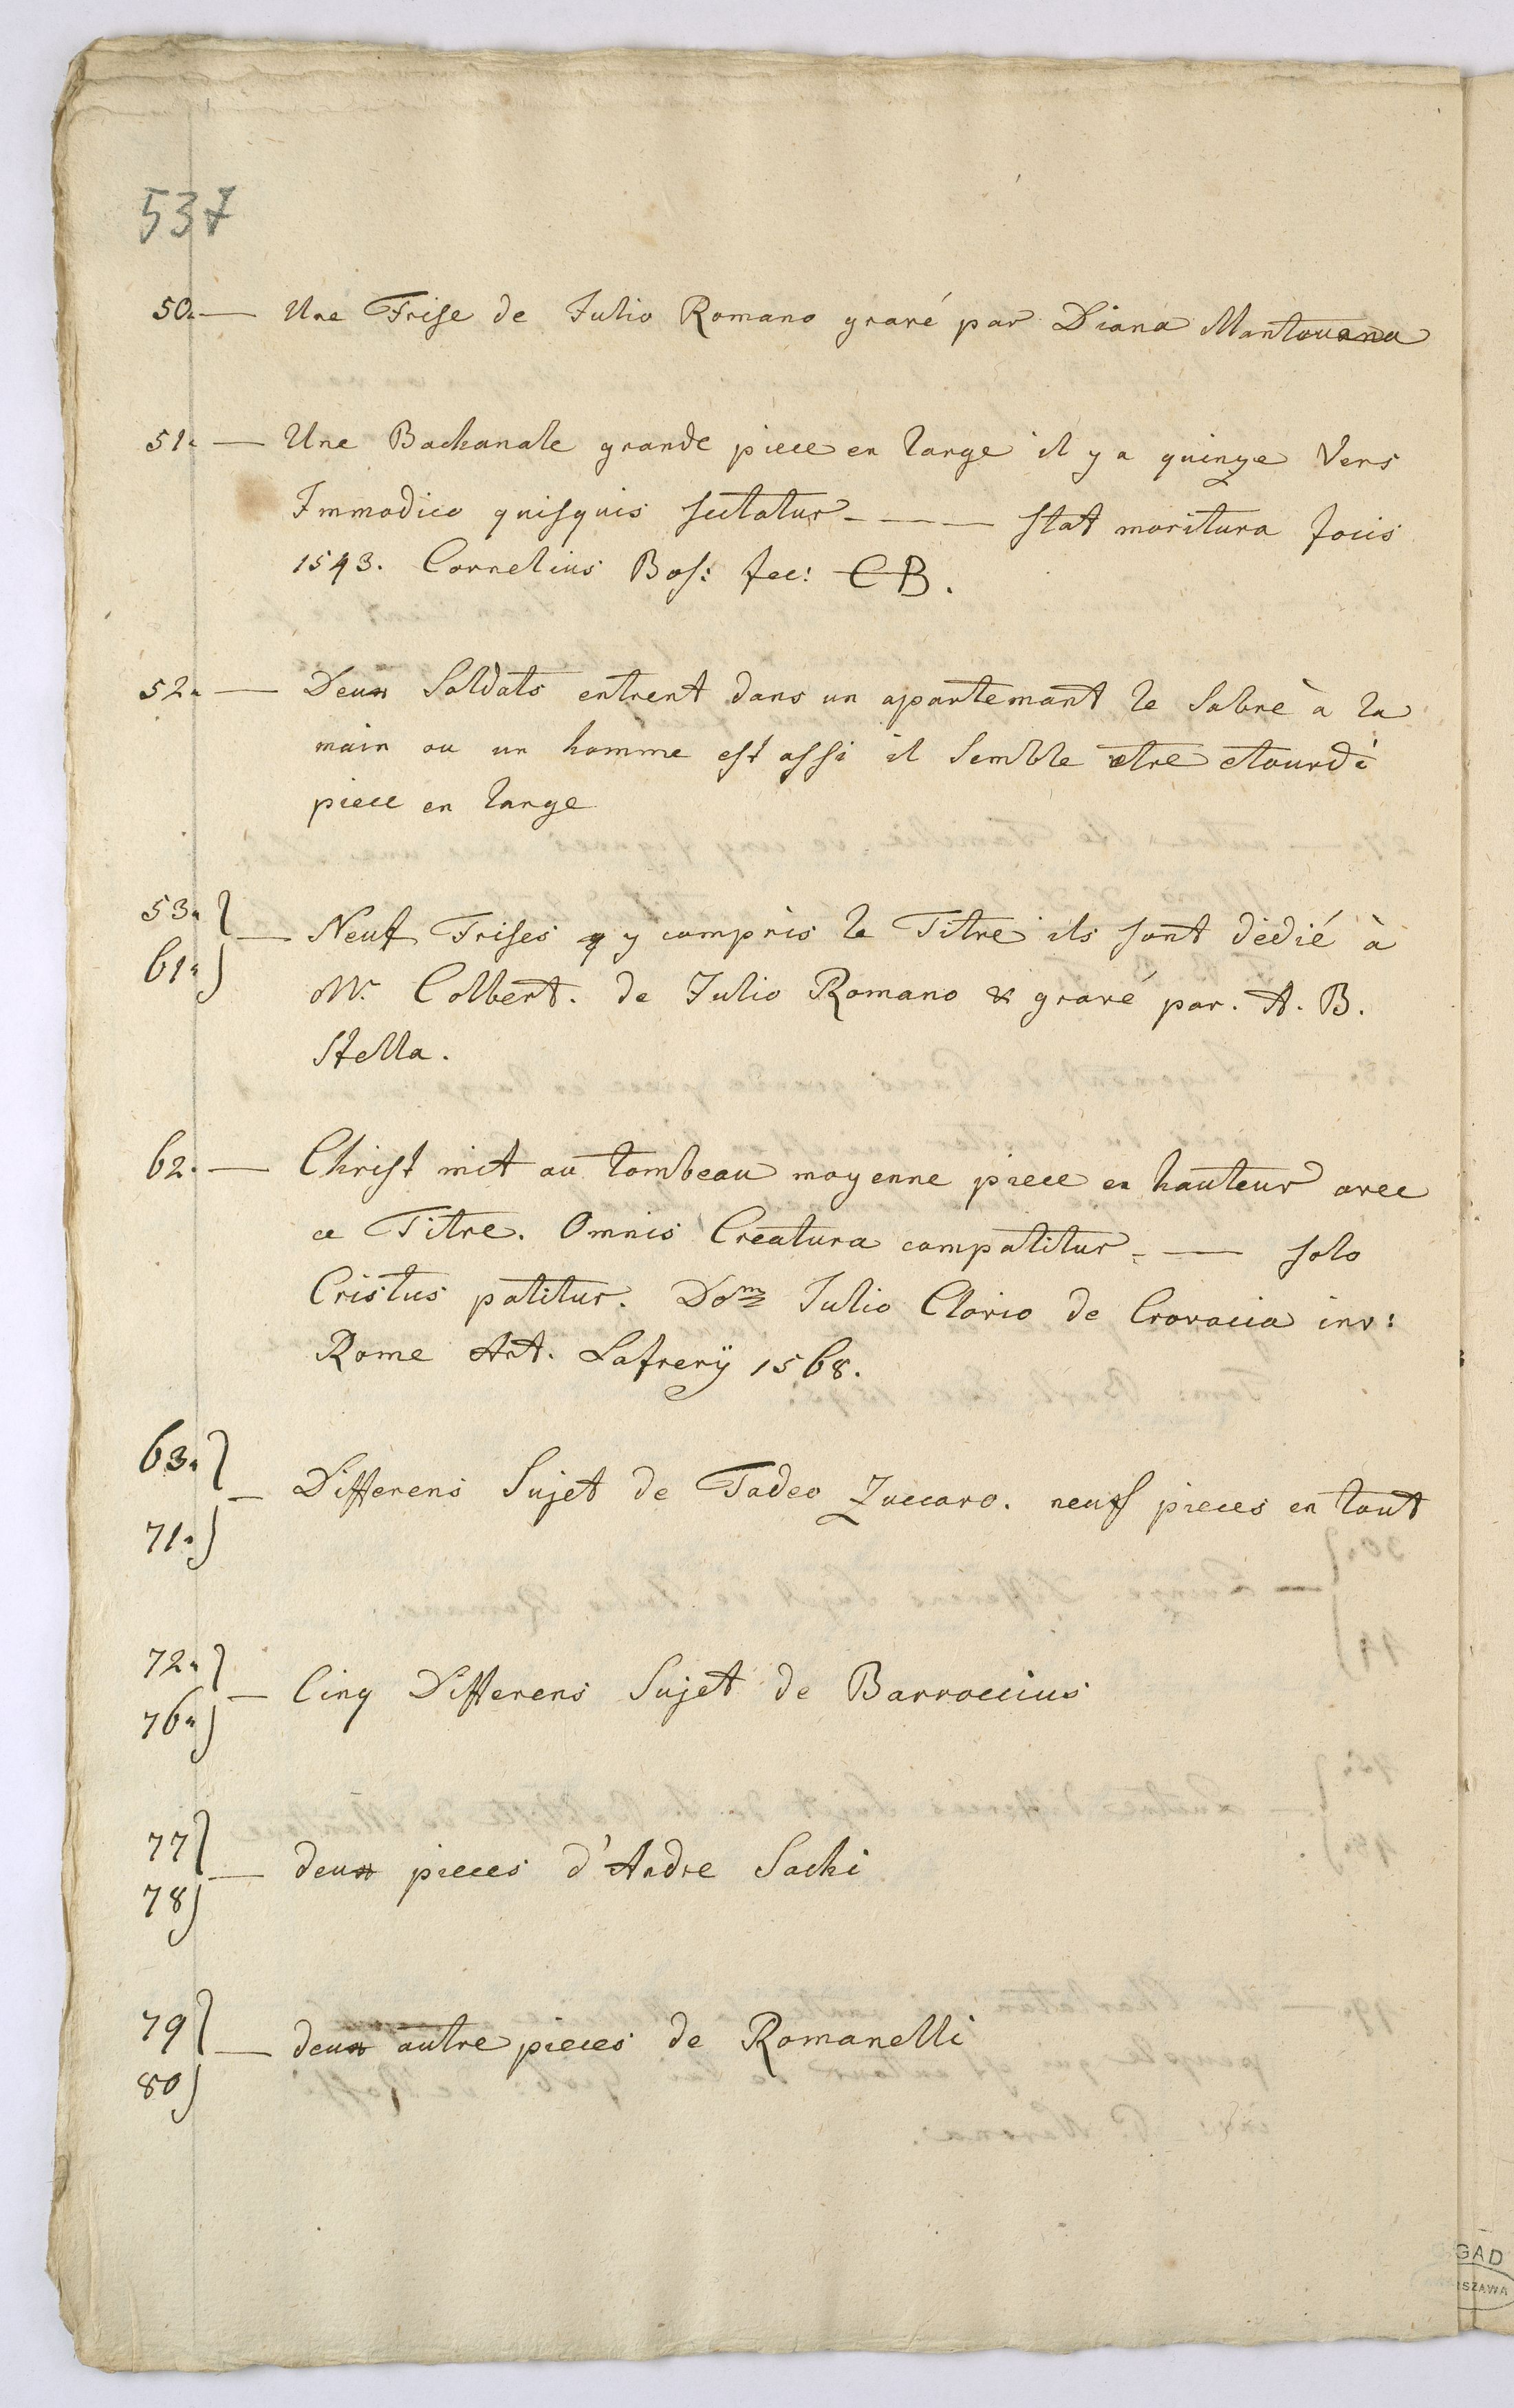 537
50. — Une Frise de Julio Romano gravé par Diana Mantouana
51. — Une Backanale grande piece en large il y a quinze Vers
Immodico quisquis sectatur - — — — stat moritura focis
1543. Cornelius Bos: fec: CB.
52. — Deux Soldats entrent dans un apartemant le Sabre à la
main ou un homme est assi il Semble etre etourdi
piece en large
53. 61. — Neuf Frises y compris le Titre ils sont dedié à
Mr. Colbert. de Julio Romano & gravé par. A. B.
Stella.
62. — Christ mit au tombeau moyenne piece en hauteur avec
ce Titre. Omnis Creatura compatitur - — solo
Cristus patitur. Dom Julio Clovio de Crovacia inv:
Rome Ant. Lafrerÿ 1568.
63. 71. — Differens Sujet de Tadeo Zuccaro. neuf pieces en tout
72. 76. — Cinq Differens Sujet de Barroccius
77 78 — deux pieces d'Andre Sachi
79 80 — deux autre pieces de Romanelli
GAD
SZAWA